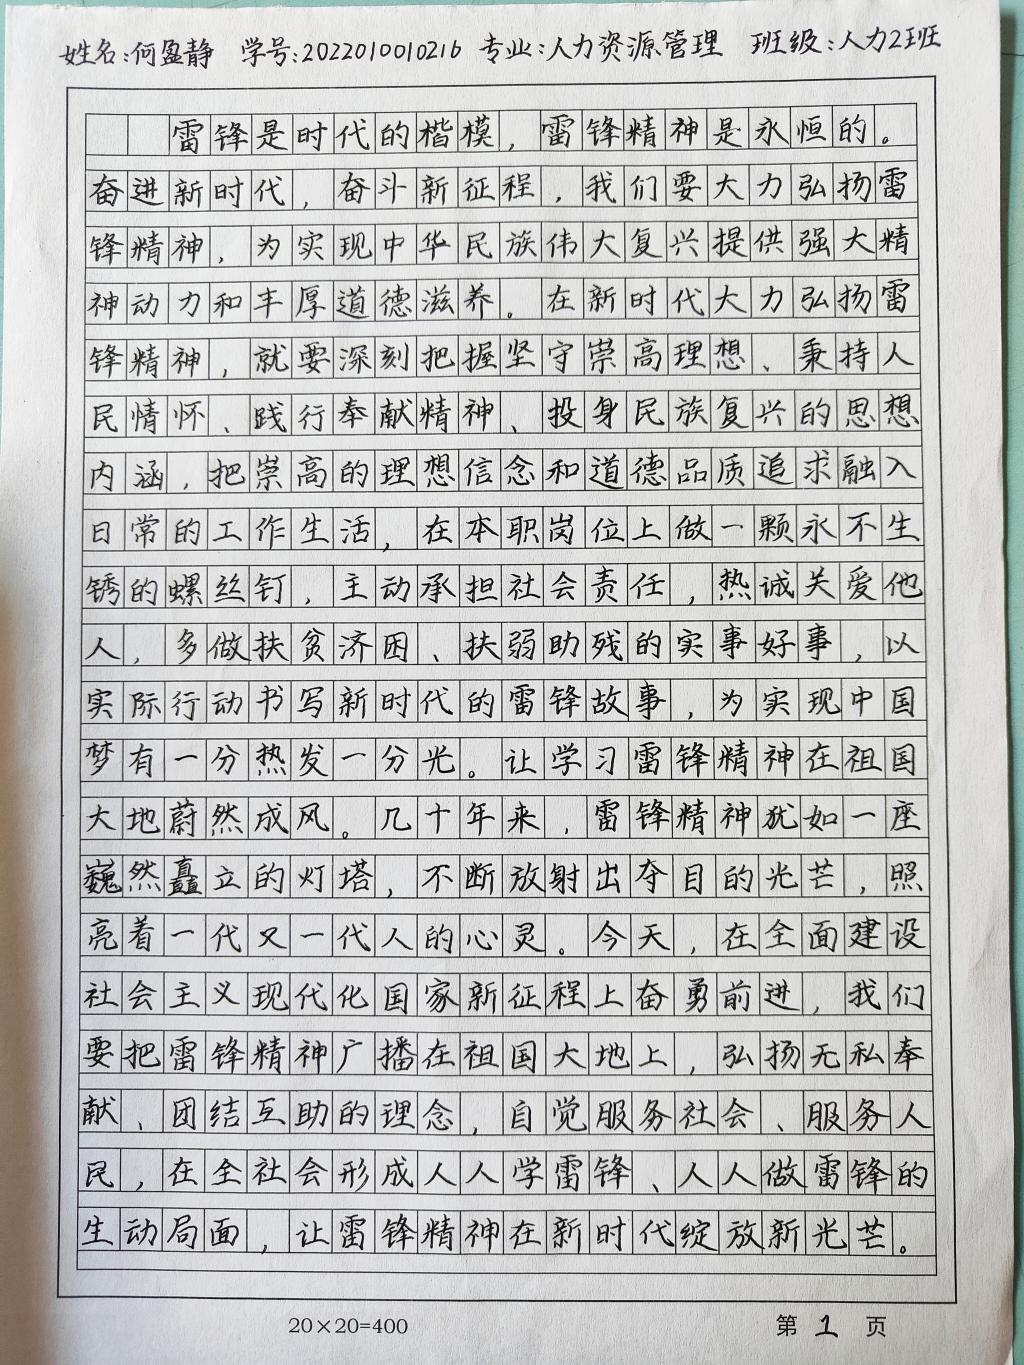 姓名:何盈静 学号:2022010010216 专业:人力资源管理 班级:人力2班
雷锋是时代的楷模,雷锋精神是永恒的。
奋进新时代,奋斗新征程,我们要大力弘扬雷
锋精神,为实现中华民族伟大复兴提供强大精
神动力和丰厚道德滋养。在新时代大力弘扬雷
锋精神,就要深刻把握坚守崇高理想、秉持人
民情怀、践行奉献精神、投身民族复兴的思想
内涵,把崇高的理想信念和道德品质追求融入
日常的工作生活,在本职岗位上做一颗永不生
锈的螺丝钉,主动承担社会责任,热诚关爱他
人,多做扶贫济困、扶弱助残的实事好事,以
实际行动书写新时代的雷锋故事,为实现中国
梦有一分热发一分光。让学习雷锋精神在祖国
大地蔚然成风。几十年来,雷锋精神犹如一座
巍然矗立的灯塔,不断放射出夺目的光芒,照
亮着一代又一代人的心灵。今天,在全面建设
社会主义现代化国家新征程上奋勇前进,我们
要把雷锋精神广播在祖国大地上,弘扬无私奉
献、团结互助的理念,自觉服务社会、服务人
民,在全社会形成人人学雷锋、人人做雷锋的
生动局面,让雷锋精神在新时代绽放新光芒。
20×20=400 第 1 页